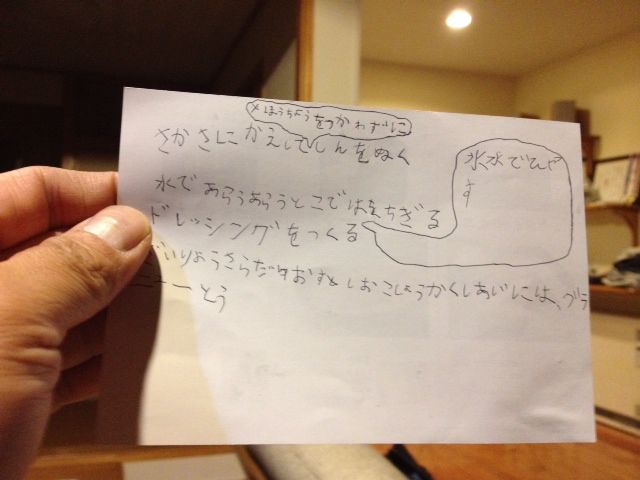 ×ほうちょうをつかわずに
さかさにかえしてしんをぬく
氷水でひや
す
水であらうあらうとこではをちぎる
ドレッシングをつくる
ざいりょうさらだゆおすとしおこしょうかくしあじには、グラ
ニューとう